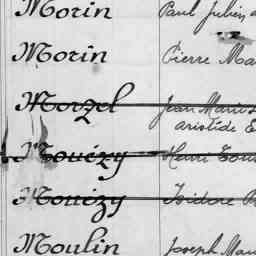 Morin Paul Julien
Morin Pierre Ma
Morzel Jean Marie
Aristide E
Mouëzy Henri Lou
Mouëzy Isidore
Moulin Joseph Mau